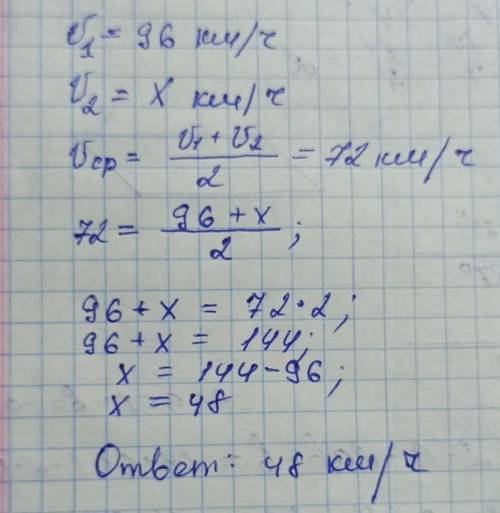 V₁ = 96 км/ч
V₂ = x км/ч
Vср = (V₁ + V₂)/2 = 72 км/ч
72 = (96 + x)/2;
96 + x = 72 · 2;
96 + x = 144;
x = 144 - 96;
x = 48
Ответ: 48 км/ч